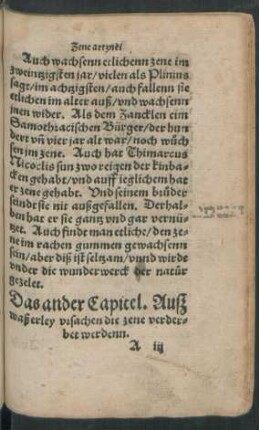 Zene artzndi
Auch wachsenn etlichenn zene im
zweintzigsten jar/ vielen als Plinius
sagt/ im achtzigsten/ auch fallenn sie
etlichen im alter auß/ vnd wachsenn
jnen wider. Als dem Zancklen eim
Samothracischen Bürger/ der hun
dert vñ vier jar alt war/ noch wüch
sen jm zene. Auch hat Thimarcus
Nicoclis sun zwo reigen der kinba-
cken gehabt/ vnd auff ieglichem hat
er zene gehabt. Vnd seinem brüder
seind sie nit außgefallen. Derhal-
ben hat er sie gantz vnd gar vernü-
tzet. Auch findt man etliche/ den ze-
ne im rachen gummen gewachsenn
sein/ aber diß ist seltzam/ vnnd wirdt
vnder die wunderwerck der natür
gezelet.
Das ander Capitel. Auß
waßerley vrsachen die zene verder-
bet werdenn.
A iij